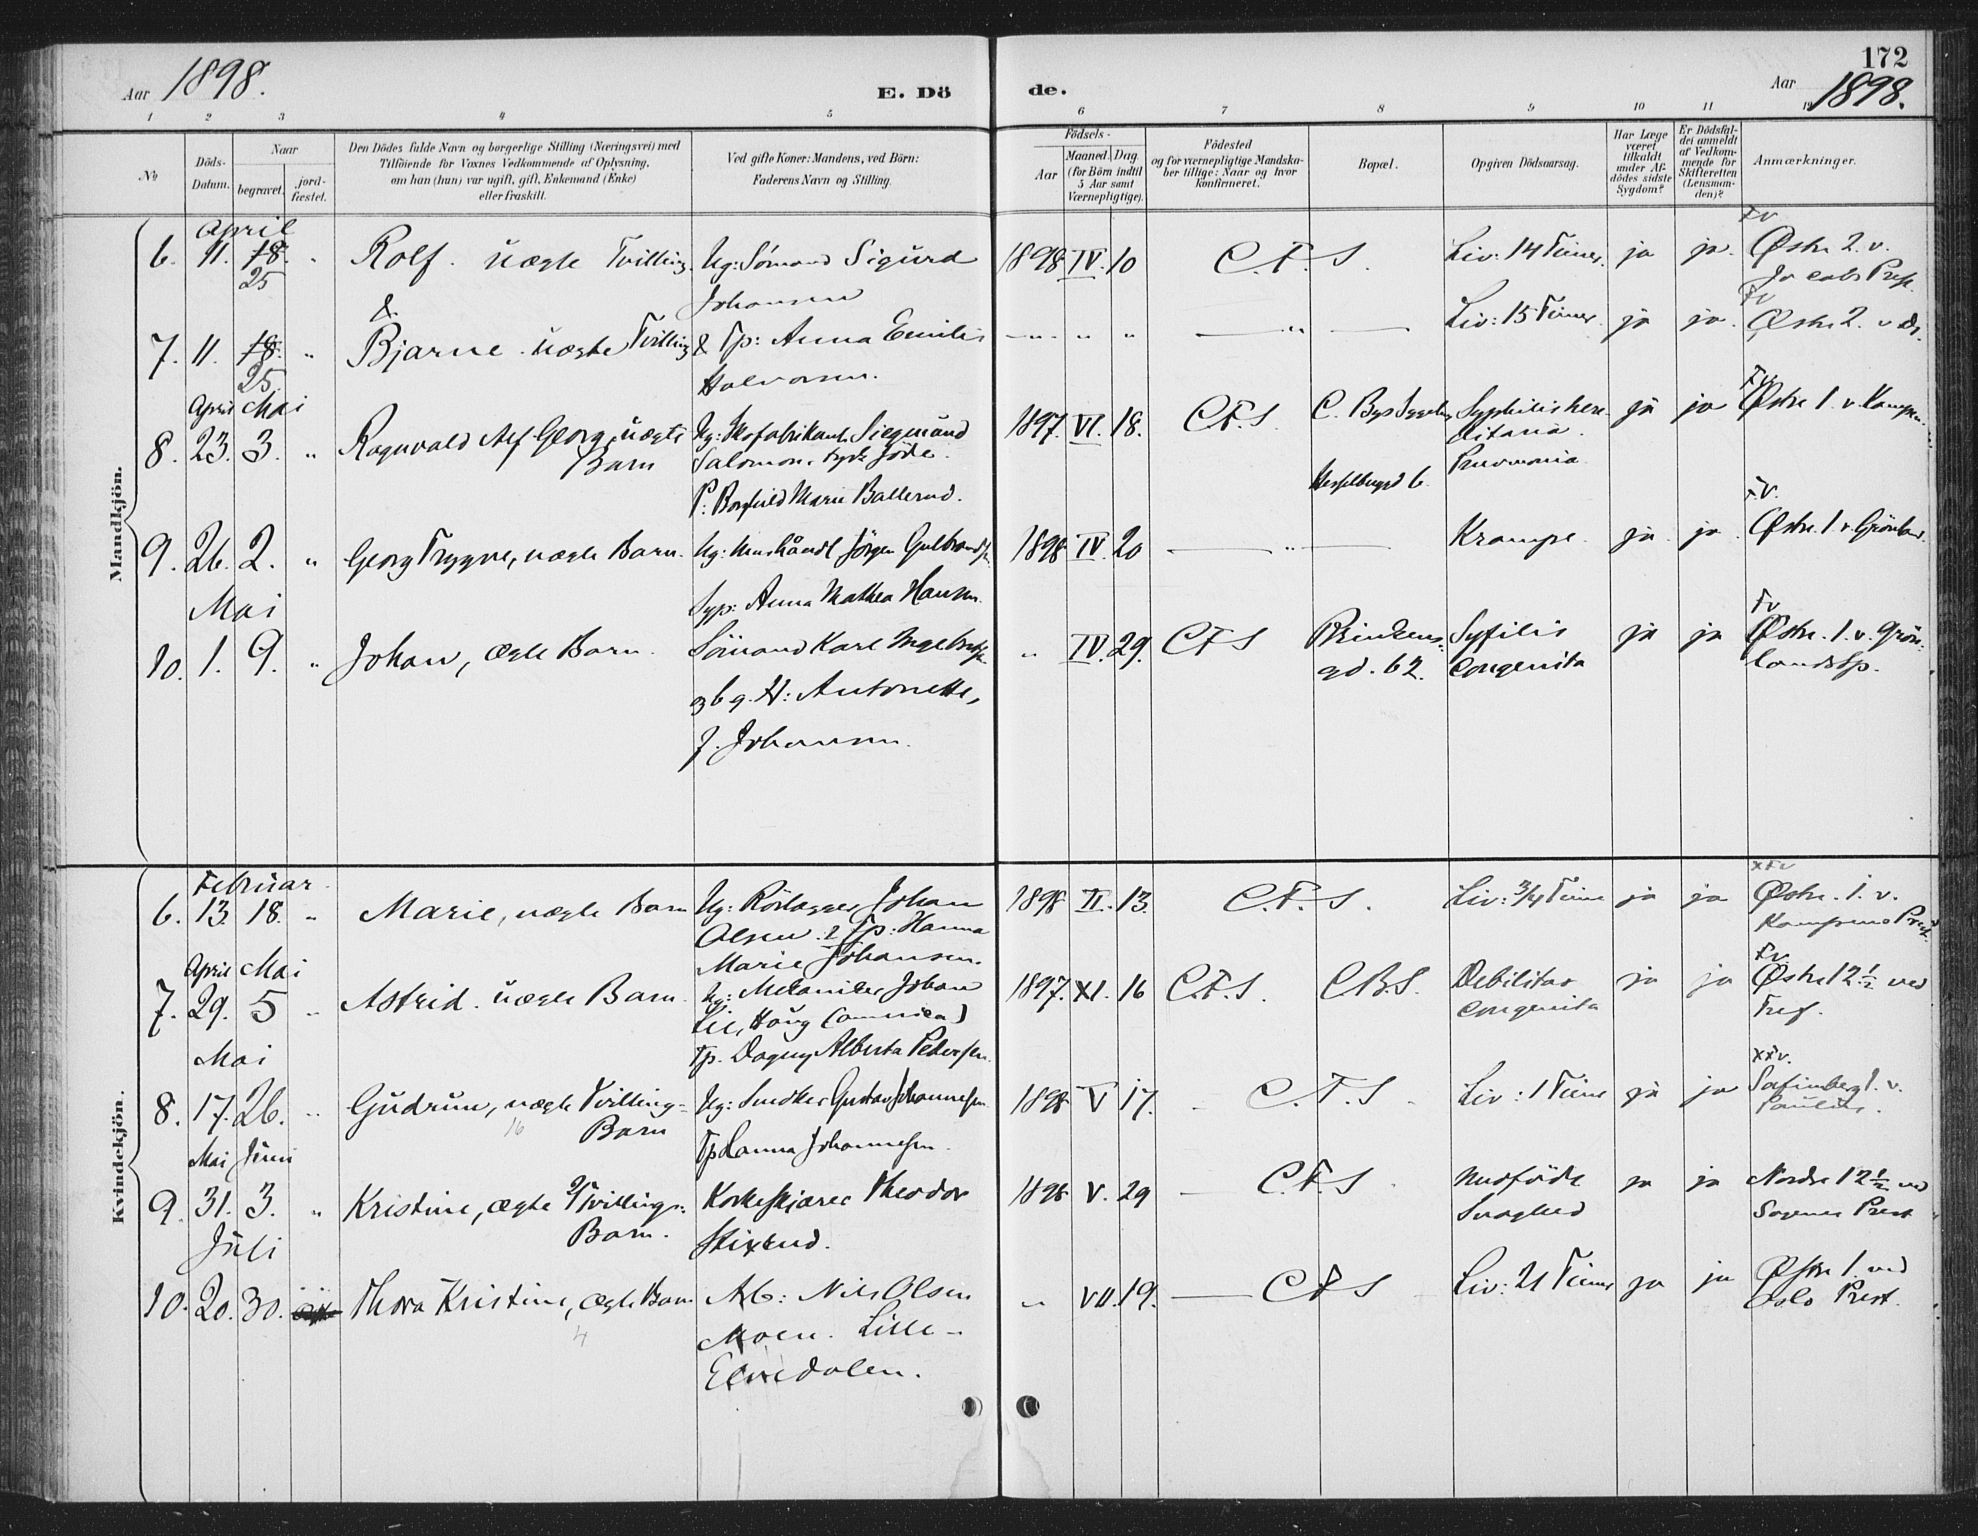 172
Aar 1898.
E. Dö
de.
Aar 1898.
1 2 3 4 5 6 7 8 9 10 11 12
No
Döds-
Datum.
Naar
begravet.
jord-
fæstet.
Den Dödes fulde Navn og borgerlige Stilling (Næringsvei) med
Tilföiende for Voxnes Vedkommende af Oplysning,
om han (hun) var ugift, gift, Enkemand (Enke)
eller fraskilt.
Ved gifte Koner: Mandens, ved Börn:
Faderens Navn og Stilling.
Födsels-
Aar
Maaned. Dag
(for Börn indtil
5 Aar samt
Værnepligtige).
Födested
og for værnepligtige Mandska-
ber tillige: Naar og hvor
konfirmeret.
Bopæl.
Opgiven Dödsaarsag.
Har Læge
været
tilkaldt
under Af-
dödes sidste
Sygdom?
Er Dödsfal-
det anmeldt
af Vedkom-
mende for
Skifteretten
(Lensman-
den)?
Anmærkninger.
Mandkjön.
April
6. 11. 18. 25 Rolf. uægte Tvilling. Ug: Sömand Sigurd
Johansen
1898 IV. 10 C. F. S. Liv: 14 Timer. ja ja. Østre 2. v.
Jacobs Prest.
&
7. 11. 18. 25. " Bjarne. uægte Tvilling & Tp: Anna Emilie
Halvorsen.
" " " Liv: 15 Timer. ja ja. Østre 2. v
April Mai
8. 23. 3. " Ragnvald Alf Georg, uægte
Barn
Ug: Skofabrikant Siegmund
Salomon, tysk Jöde.
P: Borghild Marie Ballerud.
1897. VI. 18. C. F. S. C. Bys Sygehus Syphilis here-
ditaria.
Pneumonia
6. ja ja Østre 1. v. Kampen
9. 26. 2. " Georg Trygve, uægte Barn. Ug: Jörgen
Syp: Anna Mathea Hansen.
1898 IV. 20 " Krampe. ja ja. Østre 1. v. Grönland.
Mai
10. 1. 9. " Johan, ægte Barn. Sömand Karl
og H: Antonette,
f. Johansen.
" IV. 29. C F S
gd. 62. Syfilis
congenita
ja ja Østre. 1. v. Grön-
landssp.
Kvindekjön.
Februar
6. 13. 18. " Marie, uægte Barn Ug: Rörlægger Johan
Olsen. & Tp: Hanna
Marie Johansen.
1898 II. 13. C. F. S. Liv: 3/4 Time ja ja Østre. 1. v.
Kampens Prest.
April Mai
7. 29. 5 " Astrid. uægte Barn. Ug: Mekaniker Johan
Lie, Haug
Tp. Dagny Alberta Pedersen.
1897. XI. 16 C. F. S. C. B. S. Debilitas
congenita
ja ja Østre 12 ½ ved
Tref.
Mai
8. 17. 26. " Gudrun, uægte Tvilling-
Barn
Ug: Snedker Gustav Johannesen
Tp Hanna Johannesen.
1898 V 17. C. F. S Liv: 1 Time ja ja 1. v.
Paulus.
Mai Juni
9. 31. 3. " Kristine, ægte Tvillings-
Barn.
Korkeskjærer Theodor
1898 V. 29 C. F. S Medfödt
Svaghed
ja ja Nordre 12 ½ ved
Prest
Juli
10. 20. 30. Thora Kristine, ægte Barn Arb: Nils Olsen
Moen. Lille-
Elvedalen.
" VII. 19. C F S Liv: 21 Timer ja ja Østre 1. ved
Oslo Prest.